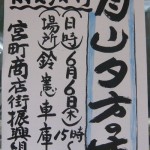 月山夕方
日時 6月6日(木) 15時
場所 鈴憲車庫
宮町商店街振興組